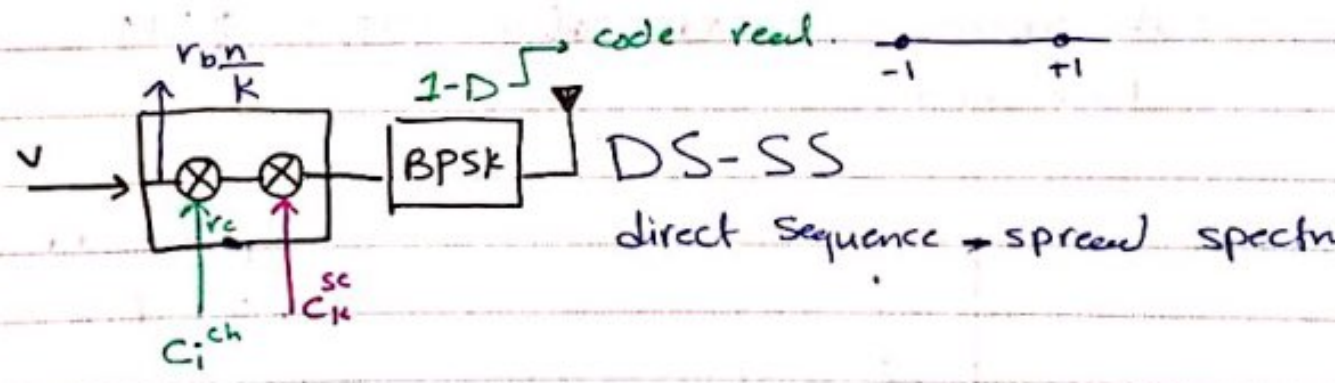 r_b n/k
1-D → code real.
-1 +1
v
BPSK
DS-SS
r_c
direct sequence - spread spectr
C_i^ch
C_k^sc